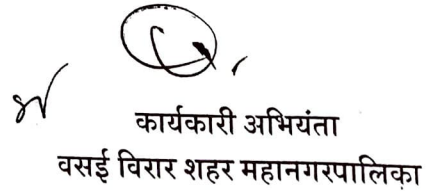 कार्यकारी अभियंता
वसई विरार शहर महानगरपालिका